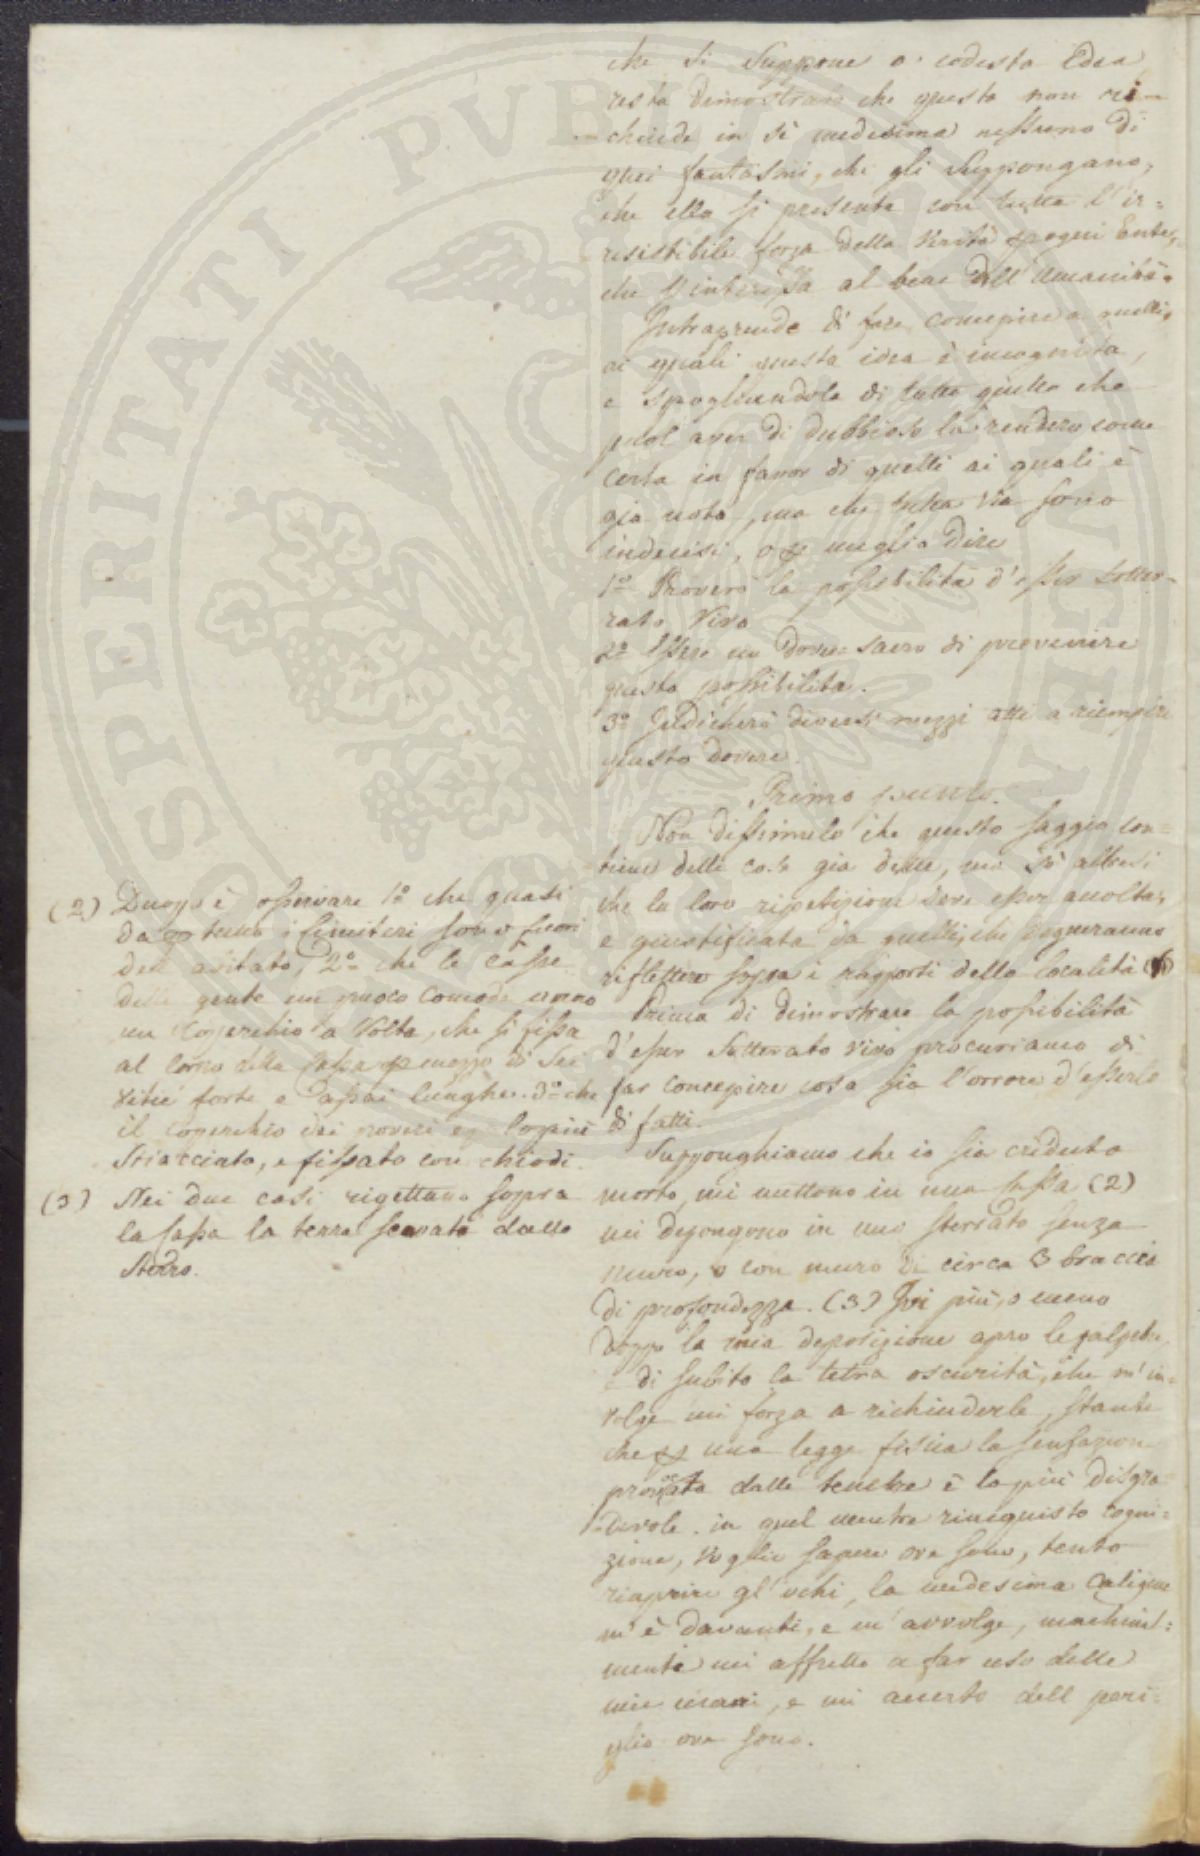 che si suppone a codesta Edea
resta dimostrato che questa non ri-
chiude in sè medesima nessuno di
quei fantasmi, che gli suppongano,
che ella si presenta con tutta l'ir=
resistibile forza della Verità ogni Ente,
che s'interessa al bene dell'Umanità.
Intraprende di fare concepire a quelli,
ai quali questa idea è incognita,
e spogliandola di tutto quello che
puol aver di dubbioso la rendero come
certa in favor di quelli ai quali è
gia nota, ma che tutta via sono
indecisi, o meglio dire
1º Proverò la possibilità d'esser sotter-
rato Vivo
2º Essere un dover sacro di prevenire
questa possibilita.
3º Indicherò diversi mezzi atti a riempire
questo dovere.
Primo punto.
Non dissimulo che questo saggio con=
tiene delle cose gia dette, ma sò altresi
che la loro ripetizione deve esser ascolta,
e giustificata da quelli, che degneranno
riflettere sopra i rapporti della località
Prima di dimostrare la possibilità
d'esser sotterato vivo procuriamo di
far concepire cosa sia l'orrore d'esserlo
di fatti.
Supponghiamo che io sia creduto
morto, mi mettono in una Cassa (2)
mi depongono in uno sterrato senza
muro, o con muro di circa 3 braccia
di profondezza. (3) Ivi più, o meno
doppo la mia deposizione apro le palpebre,
e di subito la tetra oscurità, che m'in=
volge mi forza a richiuderle, stante
che una legge fisica la sensazion
provocata dalle tenebre è la più disgra=
devole. in quel mentre rinequisto cogni=
zione, voglio sapere ove sono, tento
riaprire gl'ochi, la medesima caligine
m'è davanti, e m'avvolge, machinal=
mente mi affretto a far uso delle
mie mani, e mi accerto dell peri=
glio ove sono.
(2) Duopo è osservare 1º che quasi
da tutto i Cimiteri sono fuori
dell abitato, 2º che le Casse
delle gente un puoco Comode anno
un Coperchio a Volta, che si fissa
al Corpo della Cassa mezzo di sei
Vitie forte e assai lunghe. 3º che
il Coperchio dei poveri e lopiù
Stiacciato, e fissato con chiodi.
(3) Nei due casi rigettano sopra
la Cassa la terra scavata dallo
Sterro.